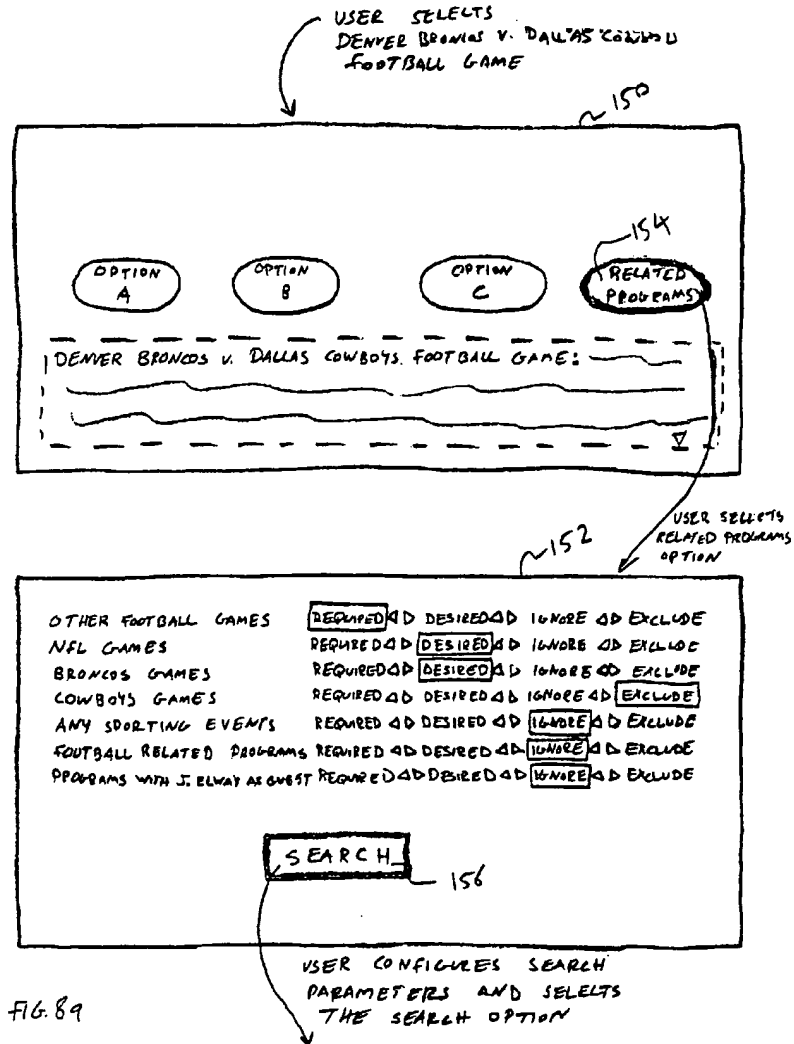 USER SELECTS
DENVER BRONCOS V. DALLAS
FOOTBALL GAME
150
154
OPTION A
OPTION B
OPTION C
RELATED PROGRAMS
DENVER BRONCOS V. DALLAS COWBOYS FOOTBALL GAME:
USER SELECTS
RELATED PROGRAMS
OPTION
152
OTHER FOOTBALL GAMES REQUIRED DESIRED IGNORE EXCLUDE
NFL GAMES REQUIRED DESIRED IGNORE EXCLUDE
BRONCOS GAMES REQUIRED DESIRED IGNORE EXCLUDE
COWBOYS GAMES REQUIRED DESIRED IGNORE EXCLUDE
ANY SPORTING EVENTS REQUIRED DESIRED IGNORE EXCLUDE
FOOTBALL RELATED PROGRAMS REQUIRED DESIRED IGNORE EXCLUDE
PROGRAMS WITH J. ELWAY AS GUEST REQUIRED DESIRED IGNORE EXCLUDE
SEARCH
156
USER CONFIGURES SEARCH
PARAMETERS AND SELECTS
THE SEARCH OPTION
FIG. 8a